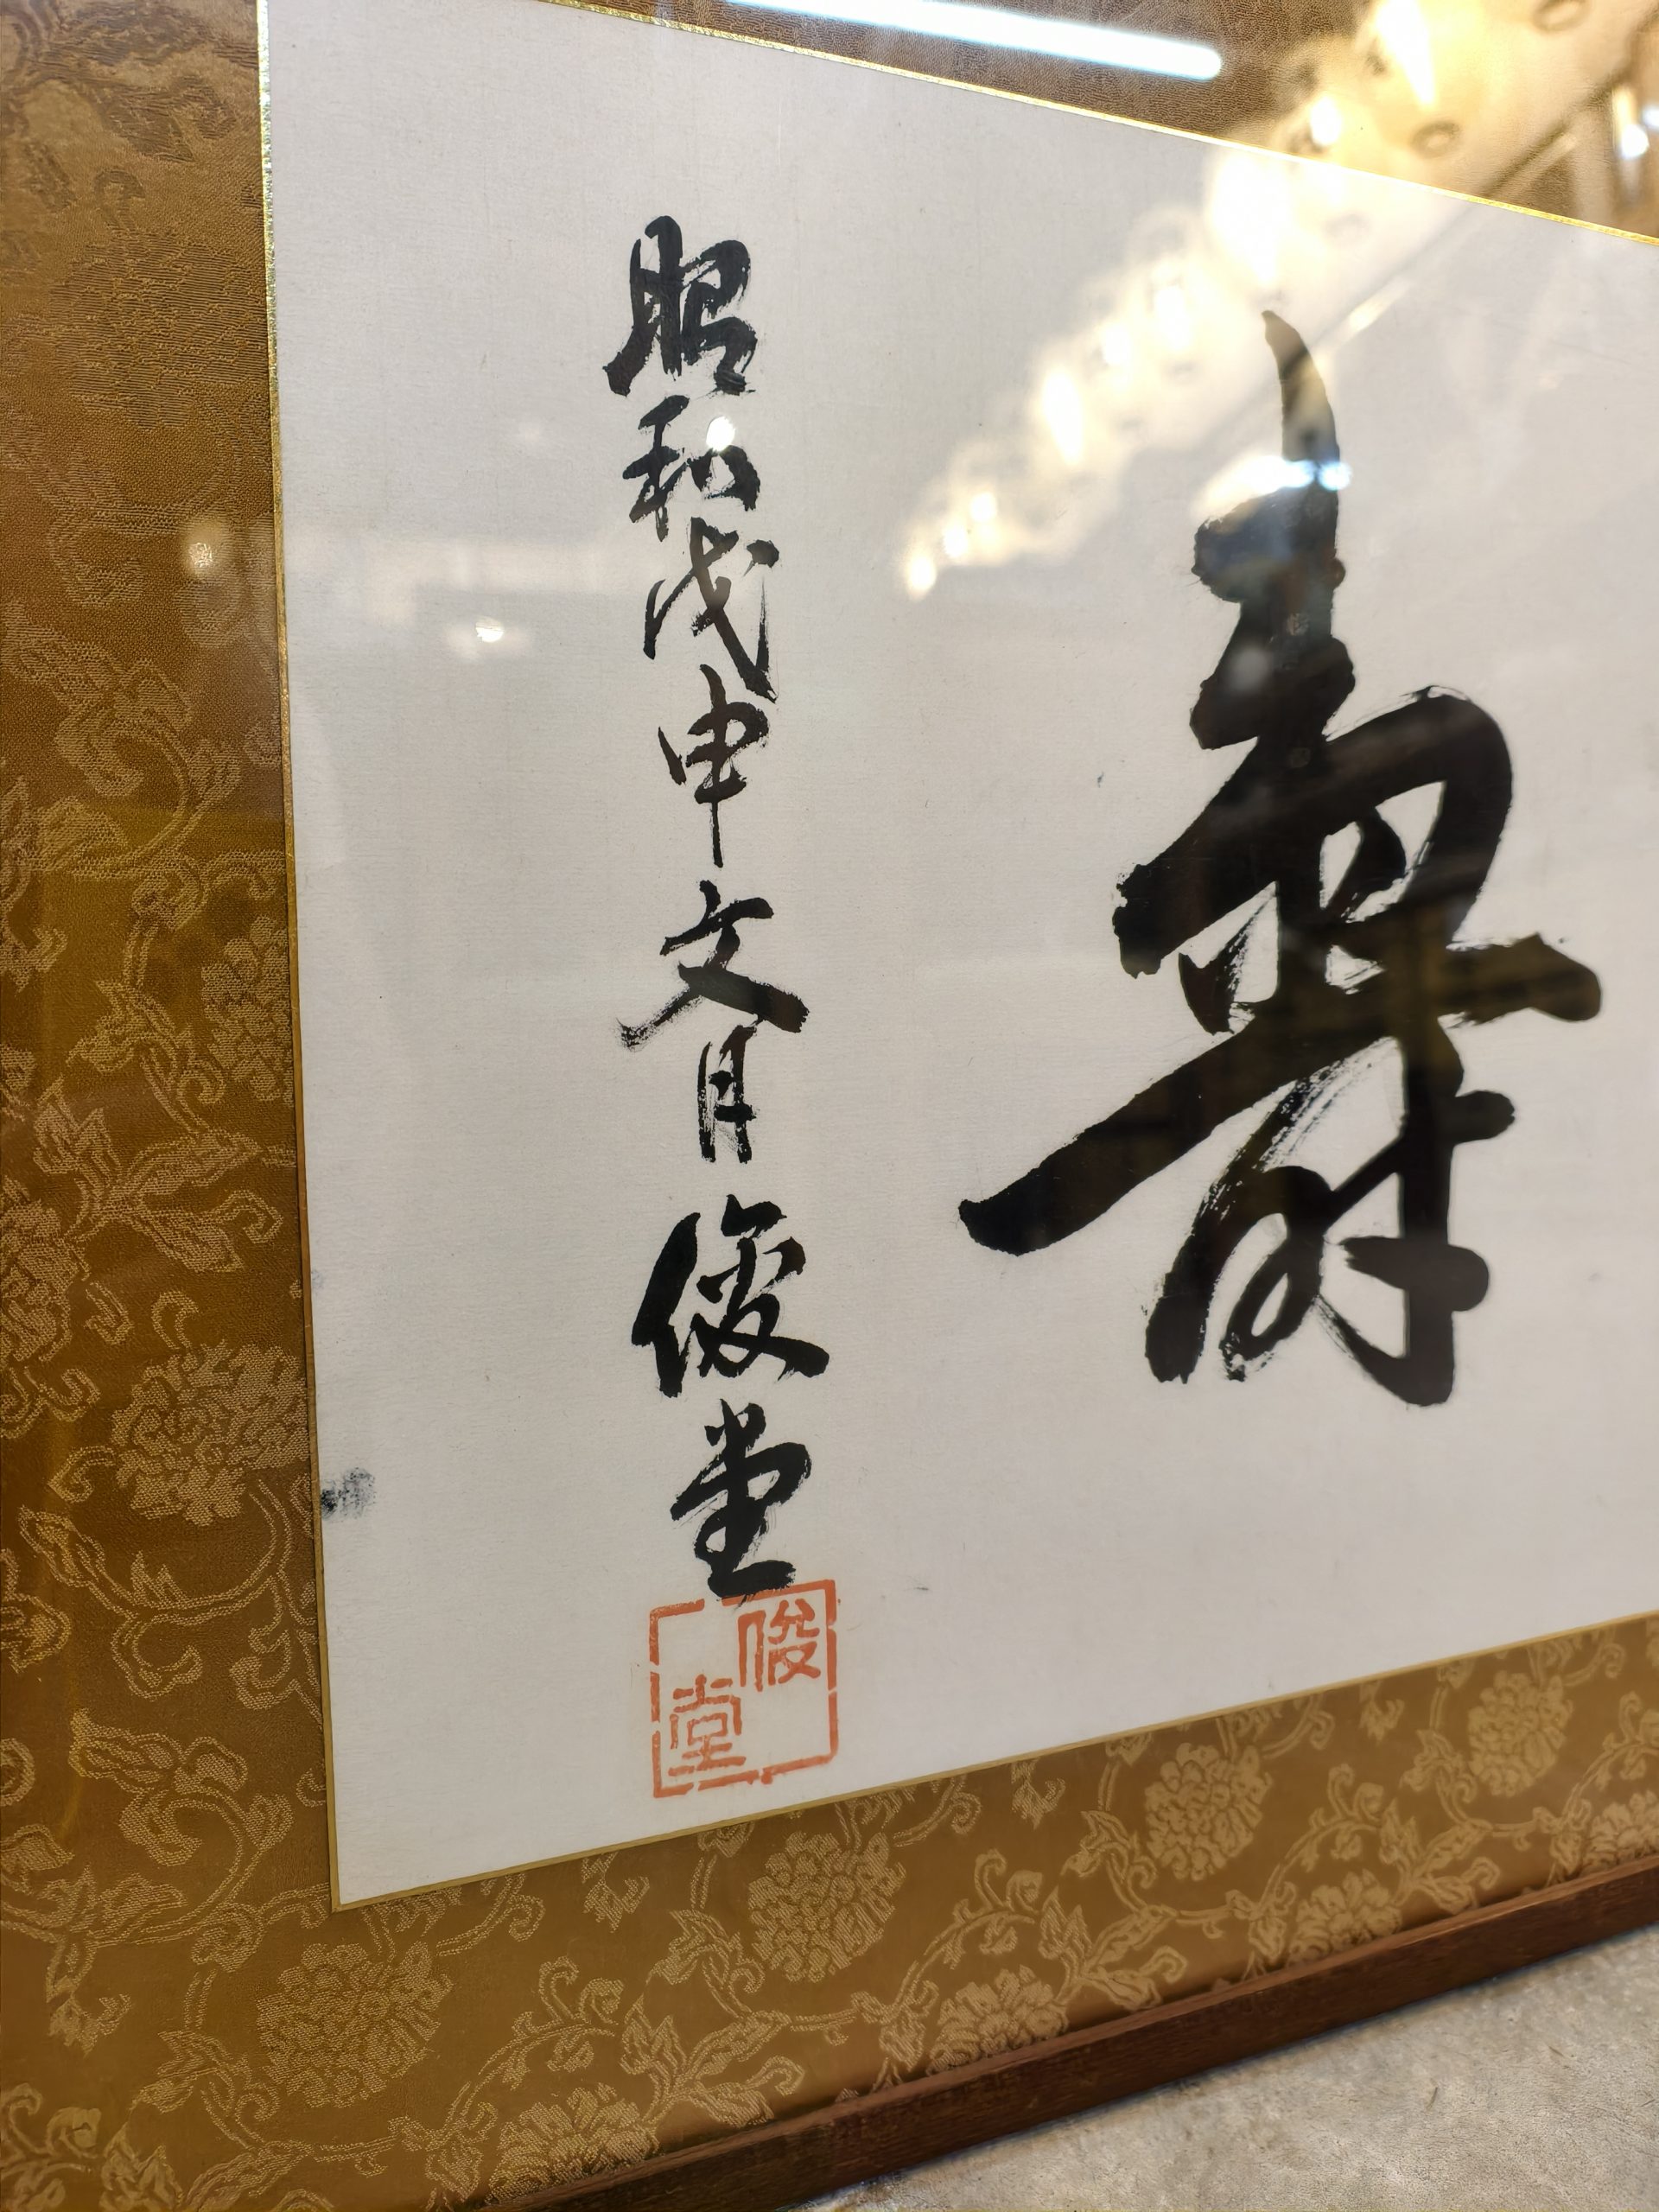 壽
昭和戊申文月 俊堂
俊堂